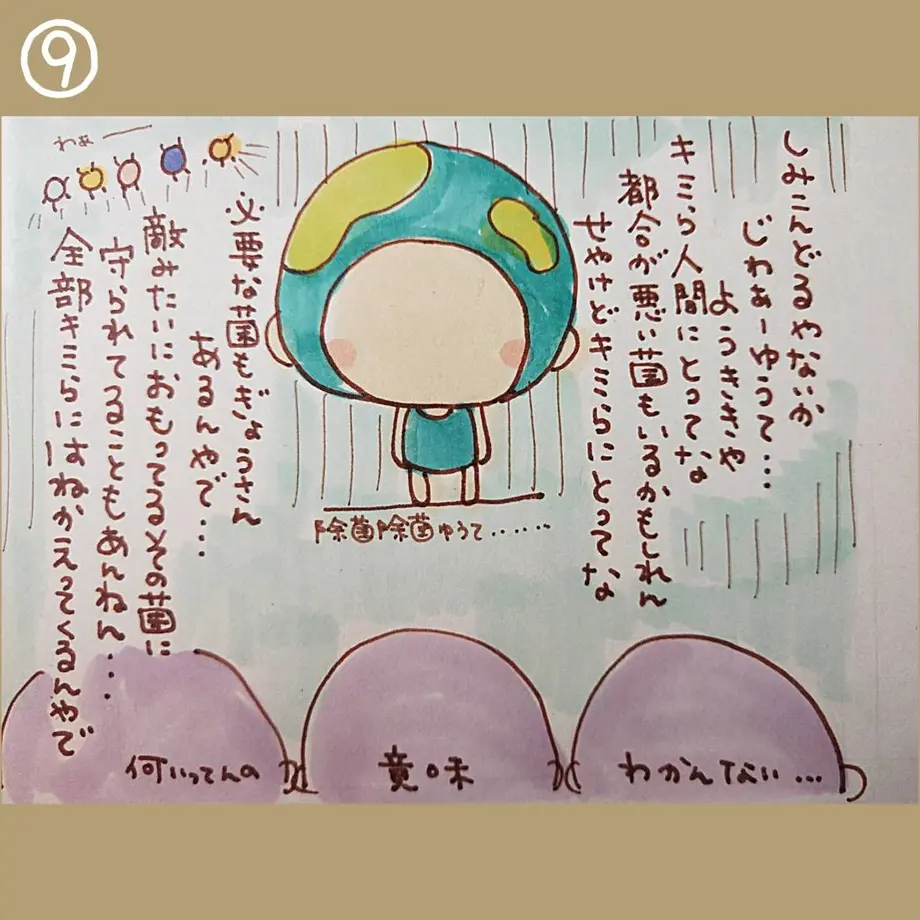 ⑨
しみこんどるやないか
じわぁーゆうて...
ようききや
キミら人間にとってな
都合が悪い菌もいるかもしれん
せやけどキミらにとってな
必要な菌もぎょうさん
あるんやで...
敵みたいにおもってるその菌に
守られてることもあんねん....
全部キミらにはねかえってくるんやで
わぁー
除菌除菌ゆうて.......
何いってんの
意味
わかんない...